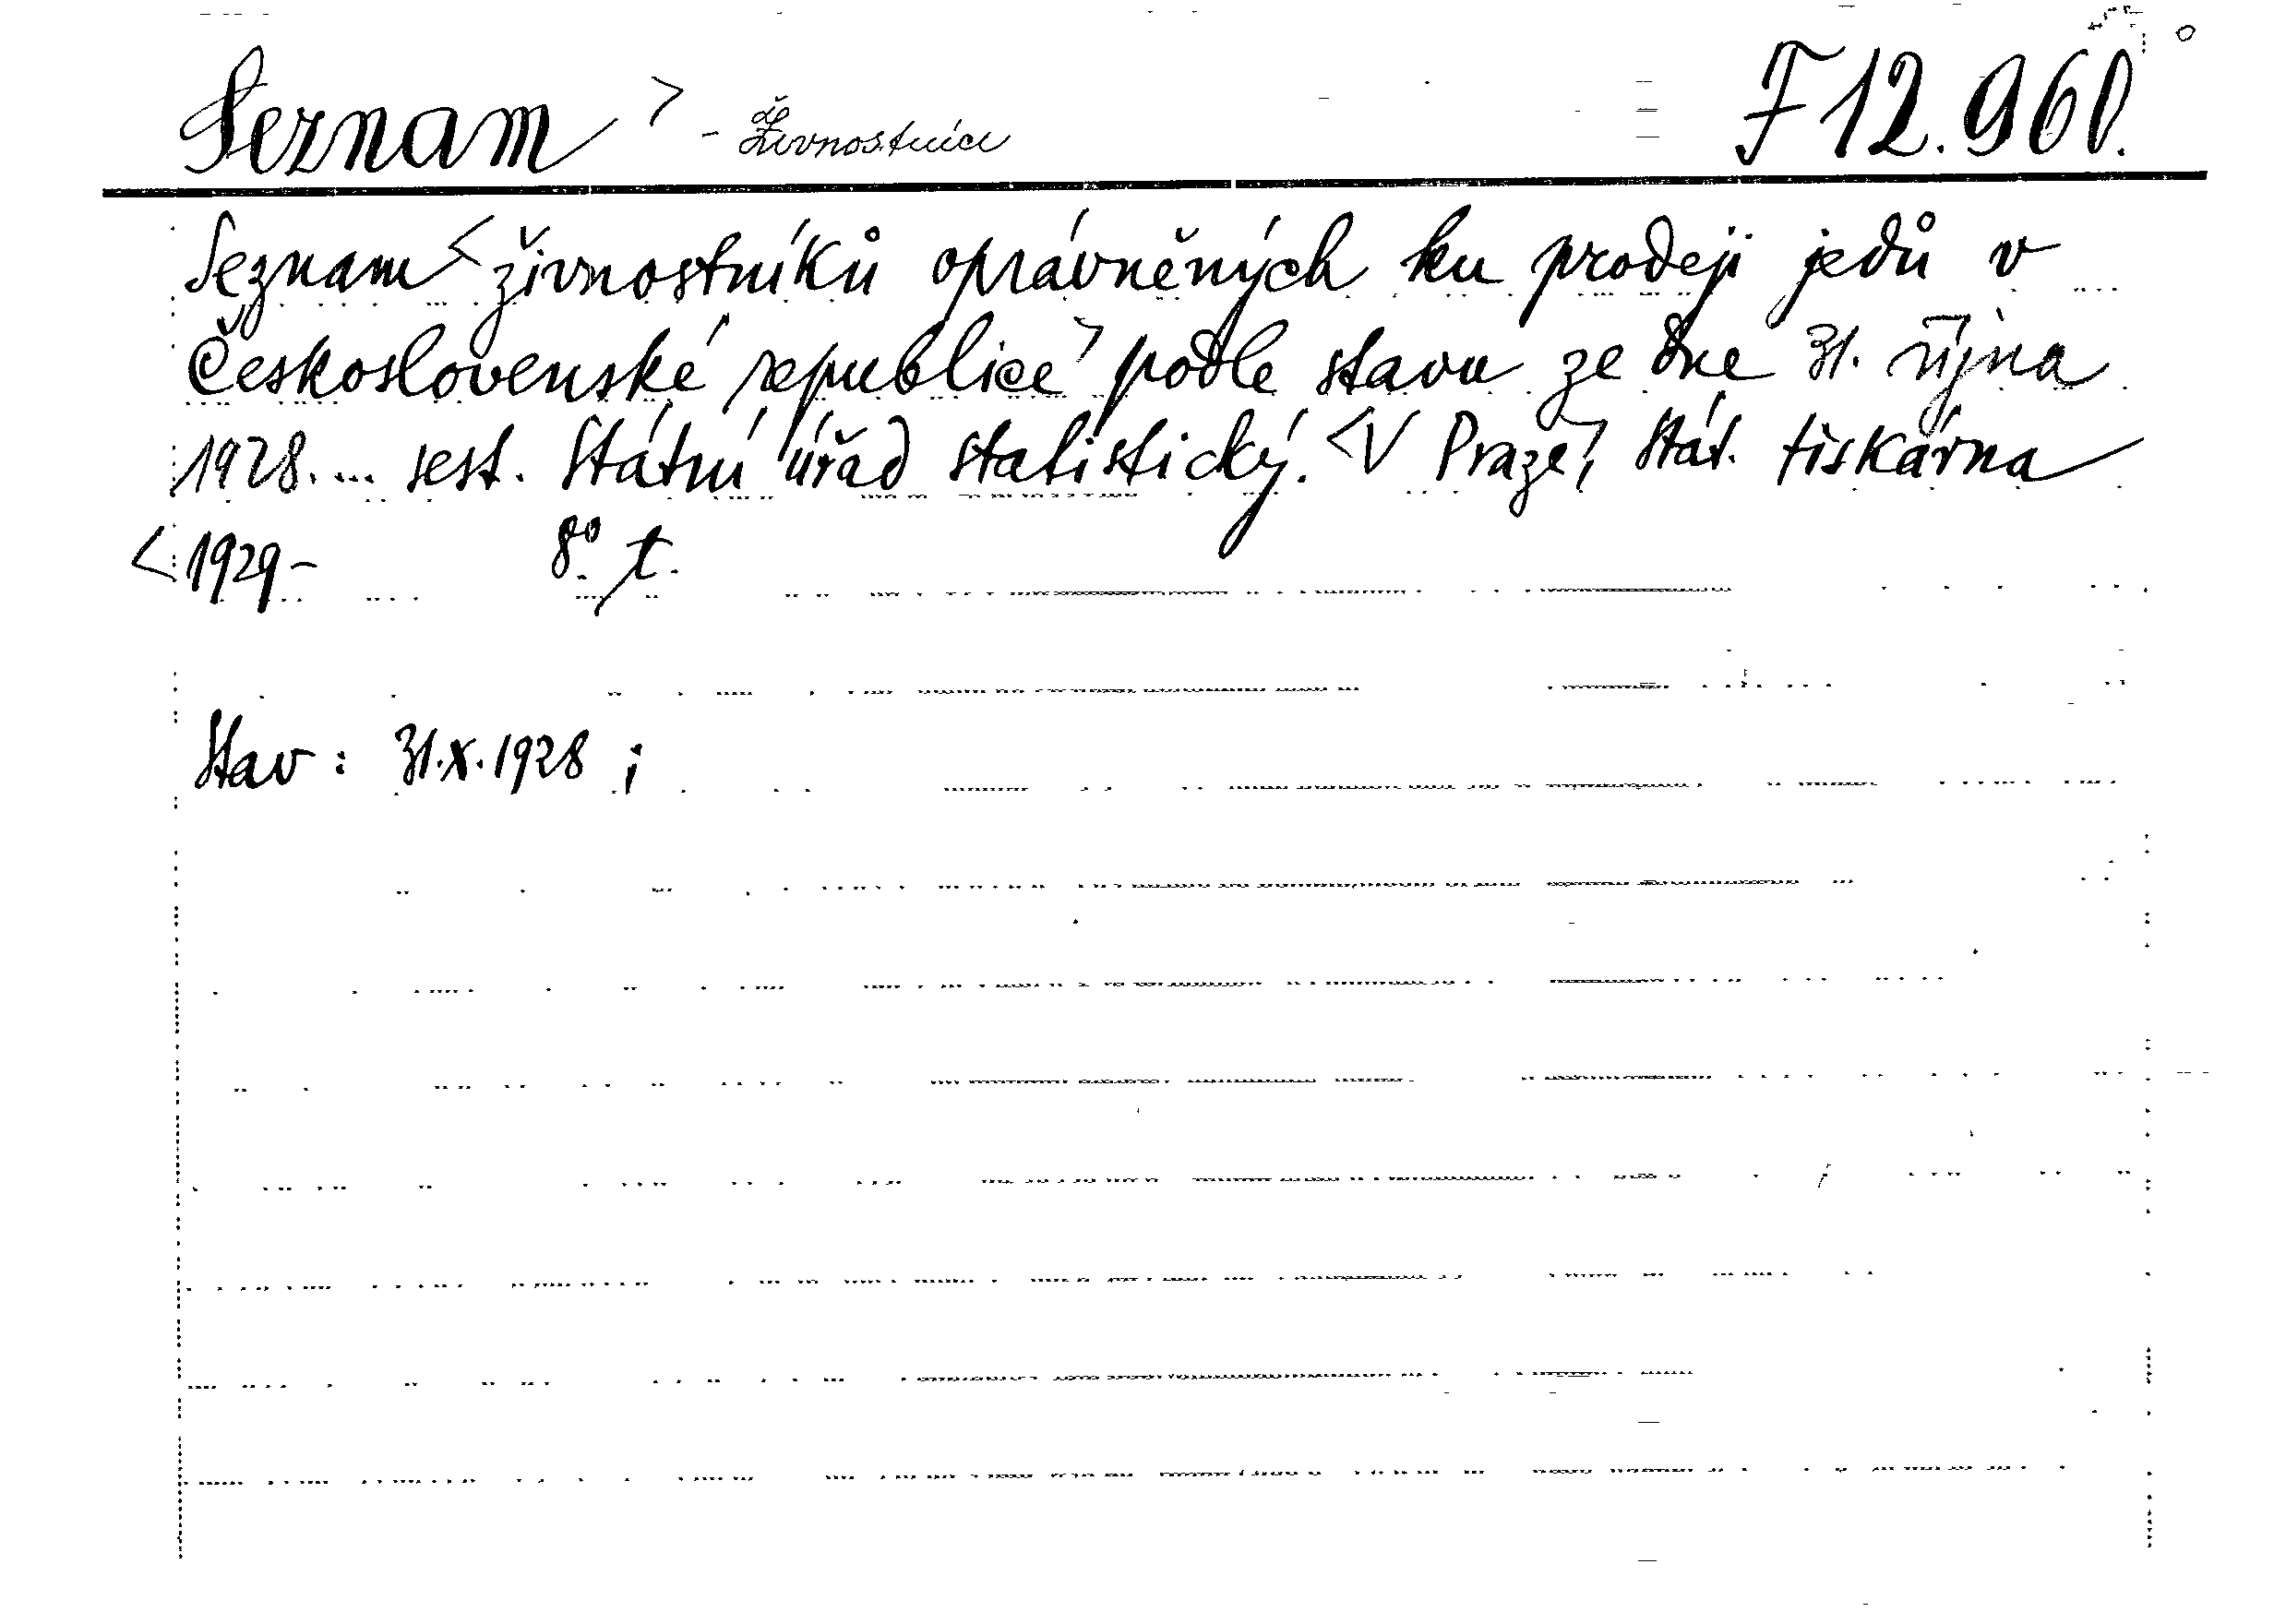 Seznam > - Živnostníci F 12.960.
Seznam < živnostníků oprávněných ku prodeji jedů v
Československé republice > podle stavu ze dne 31. října
1928.... sest. Státní úřad statistický. < V Praze, Stát. tiskárna
< 1929 - 8º. t.
Stav : 31.X.1928 ;